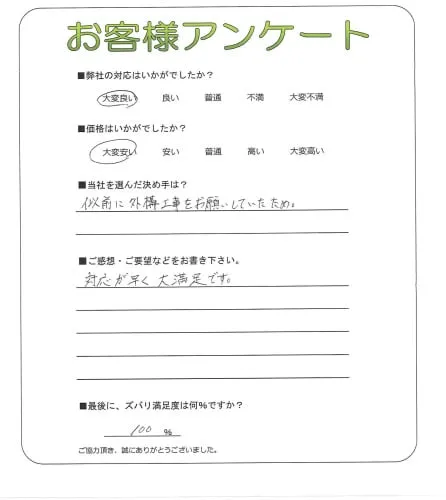 お客様アンケート
■弊社の対応はいかがでしたか？
大変良い 良い 普通 不満 大変不満
■価格はいかがでしたか？
大変安い 安い 普通 高い 大変高い
■当社を選んだ決め手は？
以前に外構工事をお願いしていたため。
■ご感想・ご要望などをお書き下さい。
対応が早く大満足です。
■最後に、ズバリ満足度は何%ですか？
100 %
ご協力頂き、誠にありがとうございました。